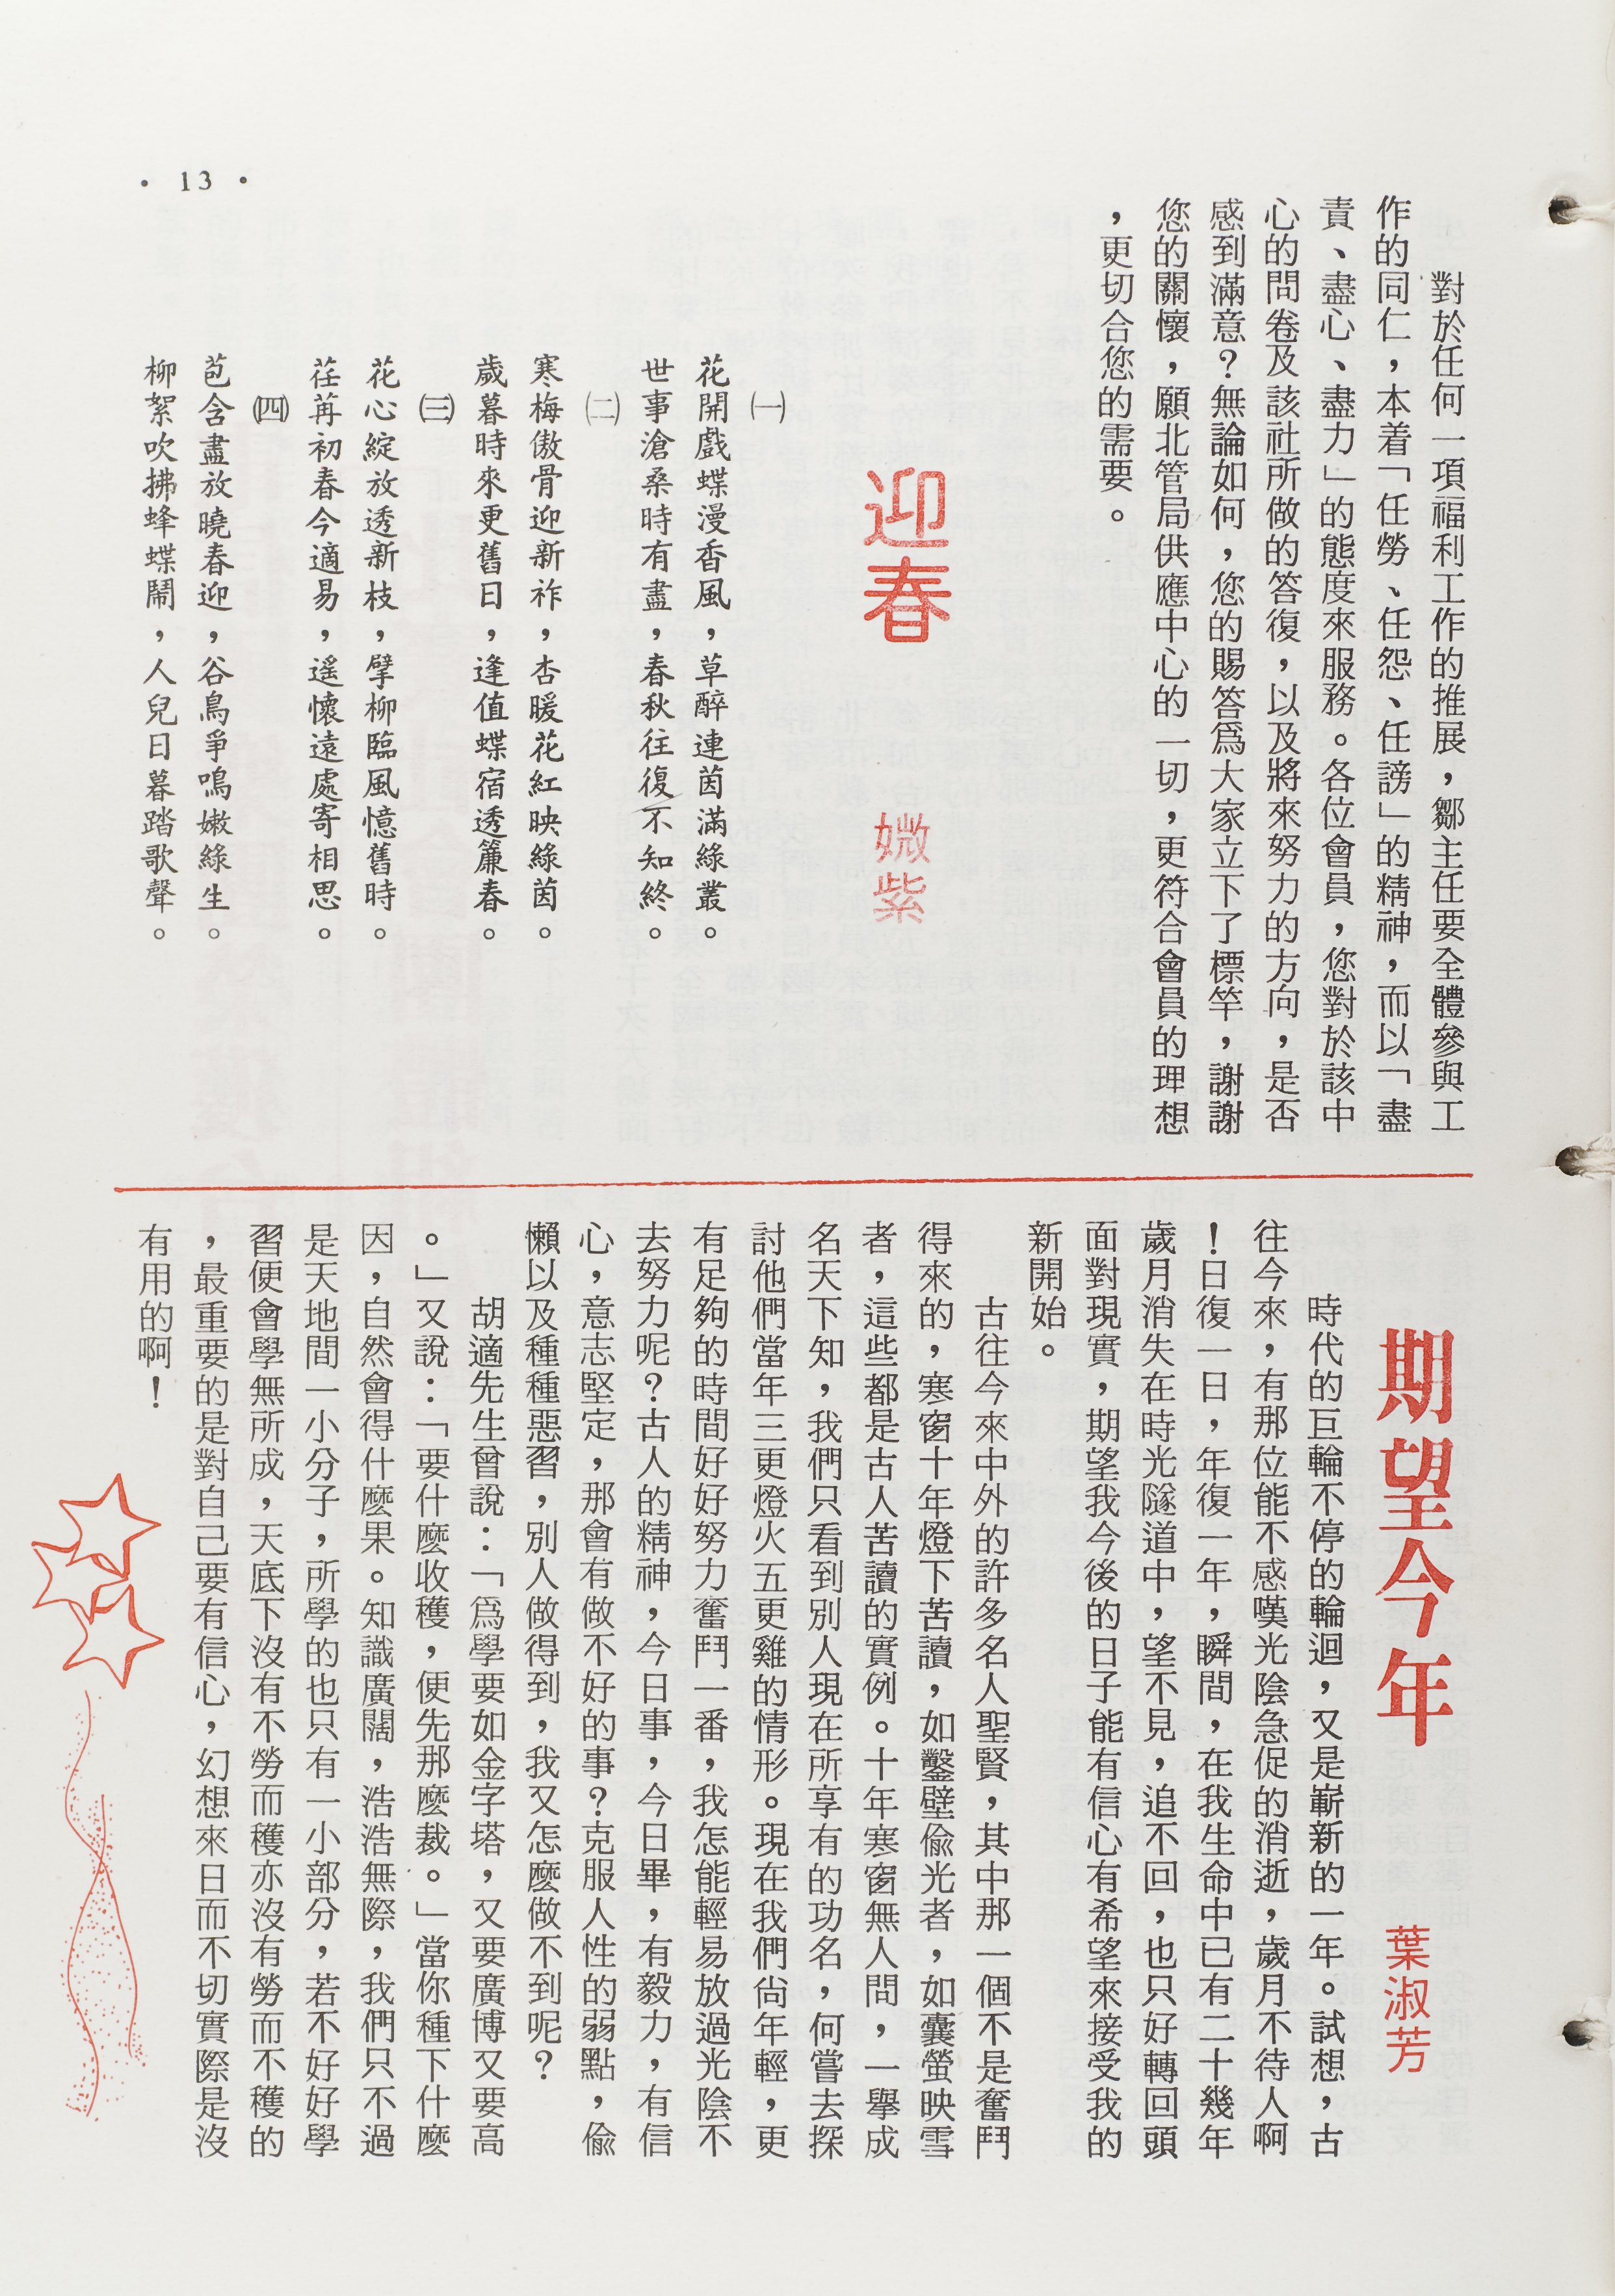 對於任何一項福利工作的推展，鄒主任要全體參與工
作的同仁，本着「任勞、任怨、任謗」的精神，而以「盡
責、盡心、盡力」的態度來服務。各位會員，您對於該中
心的問卷及該社所做的答復，以及將來努力的方向，是否
感到滿意？無論如何，您的賜答爲大家立下了標竿，謝謝
您的關懷，願北管局供應中心的一切，更符合會員的理想
，更切合您的需要。
迎春
媺紫
㈠
花開戲蝶漫香風，草醉連茵滿綠叢。
世事滄桑時有盡，春秋往復不知終。
㈡
寒梅傲骨迎新祚，杏暖花紅映綠茵。
歲暮時來更舊日，逢值蝶宿透簾春。
㈢
花心綻放透新枝，擘柳臨風憶舊時。
荏苒初春今適易，遙懷遠處寄相思。
㈣
苞含盡放曉春迎，谷鳥爭鳴嫩綠生。
柳絮吹拂蜂蝶鬧，人兒日暮踏歌聲。
期望今年
葉淑芳
時代的巨輪不停的輪迴，又是嶄新的一年。試想，古
往今來，有那位能不感嘆光陰急促的消逝，歲月不待人啊
！日復一日，年復一年，瞬間，在我生命中已有二十幾年
歲月消失在時光隧道中，望不見，追不回，也只好轉回頭
面對現實，期望我今後的日子能有信心有希望來接受我的
新開始。
古往今來中外的許多名人聖賢，其中那一個不是奮鬥
得來的，寒窗十年燈下苦讀，如鑿壁偷光者，如囊螢映雪
者，這些都是古人苦讀的實例。十年寒窗無人問，一擧成
名天下知，我們只看到別人現在所享有的功名，何嘗去探
討他們當年三更燈火五更雞的情形。現在我們尙年輕，更
有足夠的時間好好努力奮鬥一番，我怎能輕易放過光陰不
去努力呢？古人的精神，今日事，今日畢，有毅力，有信
心，意志堅定，那會有做不好的事？克服人性的弱點，偷
懶以及種種惡習，別人做得到，我又怎麼做不到呢？
胡適先生曾說：「爲學要如金字塔，又要廣博又要高
。」又說：「要什麼收穫，便先那麼栽。」當你種下什麼
因，自然會得什麼果。知識廣闊，浩浩無際，我們只不過
是天地間一小分子，所學的也只有一小部分，若不好好學
習便會學無所成，天底下沒有不勞而穫亦沒有勞而不穫的
，最重要的是對自己要有信心，幻想來日而不切實際是沒
有用的啊！
• 13 •